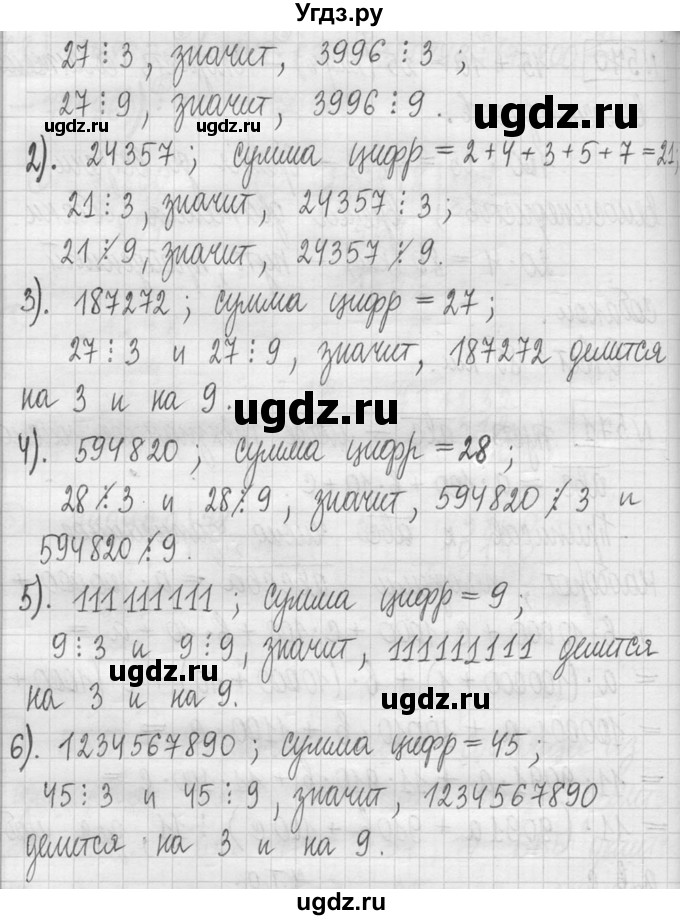 Угдз.ру
27 ⋮ 3, значит, 3996 ⋮ 3;
27 ⋮ 9, значит, 3996 ⋮ 9.
ugdz.ru ugdz.ru ugdz.ru
2). 24357; сумма цифр = 2+4+3+5+7=21;
21 ⋮ 3, значит, 24357 ⋮ 3;
21 ⋮̸ 9, значит, 24357 ⋮̸ 9.
3). 187272; сумма цифр = 27;
27 ⋮ 3 и 27 ⋮ 9, значит, 187272 делится
на 3 и на 9.
ugdz.ru
4). 594820; сумма цифр = 28;
28 ⋮̸ 3 и 28 ⋮̸ 9, значит, 594820 ⋮̸ 3 и
594820 ⋮̸ 9.
5). 111111111; сумма цифр = 9;
9 ⋮ 3 и 9 ⋮ 9, значит, 111111111 делится
на 3 и на 9.
ugdz.ru ugdz.ru
6). 1234567890; сумма цифр = 45;
45 ⋮ 3 и 45 ⋮ 9, значит, 1234567890
делится на 3 и на 9.
ugdz.ru